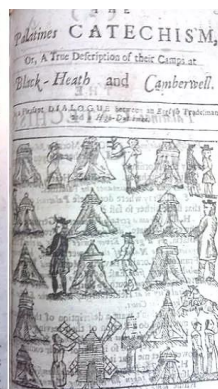 THE
Palatines CATECHISM,
Or, A True Description of their Camps at
Black-Heath and Camberwell.
In a Pleasant DIALOGUE between an English Tradesman
and a High-Dutchman.